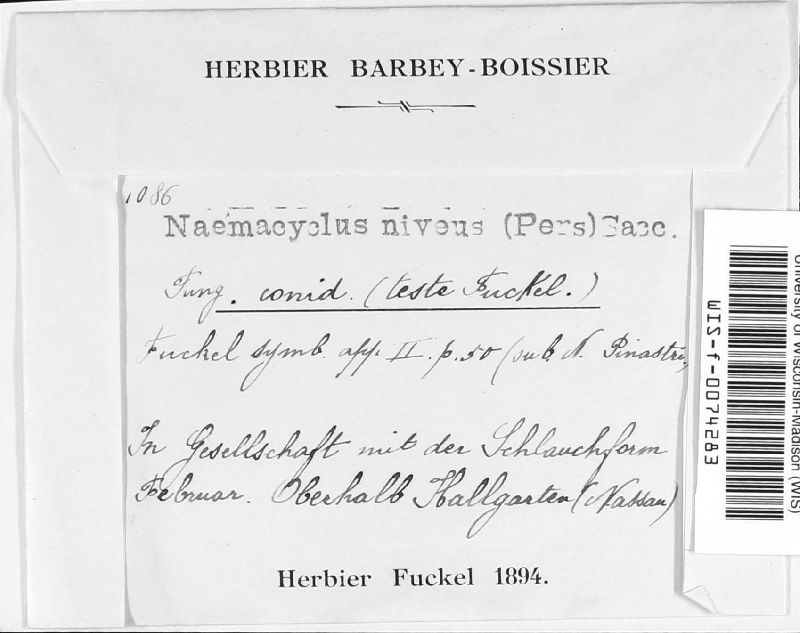 HERBIER BARBEY-BOISSIER
1086
Naemacyclus niveus (Pers) Sacc.
Fung. conid. (teste Fuckel.)
Fuckel symb. app. II. p. 50 (sub. N. Pinastri)
In Gesellschaft mit der Schlauchform
Februar. Oberhalb Hallgarten (Nassau)
Herbier Fuckel 1894.
WIS-f-0074283
University of Wisconsin-Madison (WIS)